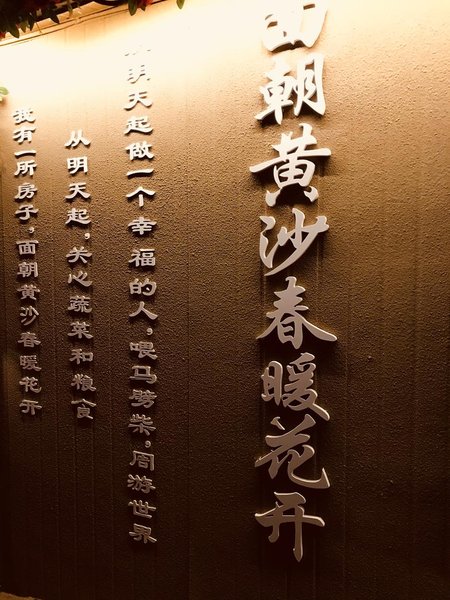 面朝黄沙春暖花开
从明天起做一个幸福的人,喂马劈柴,周游世界
从明天起,关心蔬菜和粮食
我有一所房子,面朝黄沙春暖花开